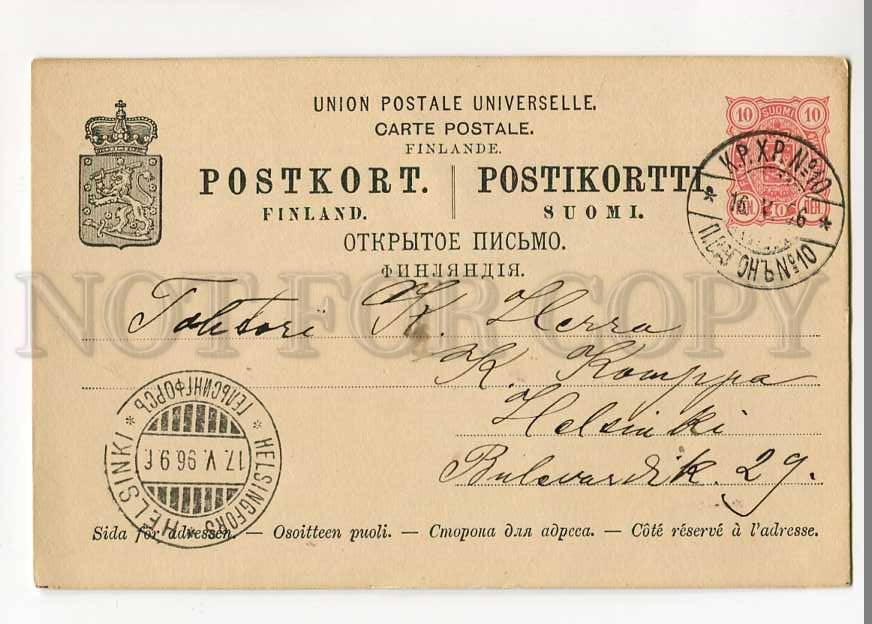 UNION POSTALE UNIVERSELLE.
CARTE POSTALE.
FINLANDE.
POSTKORT. POSTIKORTTI
FINLAND. SUOMI.
ОТКРЫТОЕ ПИСЬМО.
ФИНЛЯНДІЯ.
10 SUOMI 10
10 ПЕН.
K.P.XP.No10
16 V 6
No10
NOT FOR COPY
Tohtori K. Herra
K. Komppa
Helsinki
Bulevardik. 29.
ГЕЛЬСИНГФОРСЪ
17.V.96 9 f
HELSINGFORS * HELSINKI
Sida för adressen. — Osoitteen puoli. — Сторона для адреса. — Côté réservé à l'adresse.